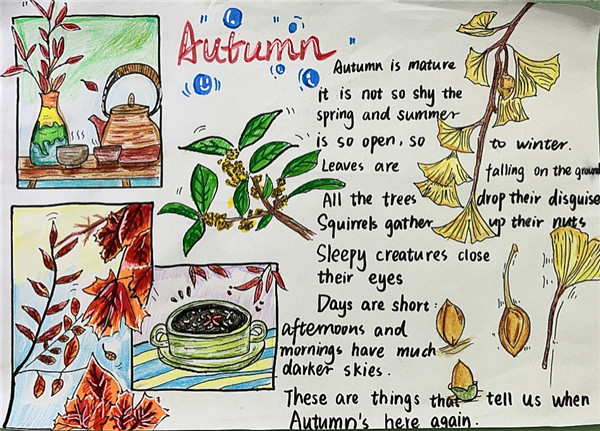 Autumn
Autumn is mature
it is not so shy the
spring and summer
is so open, so to winter.
Leaves are falling on the ground
All the trees drop their disguise
Squirrels gather up their nuts
Sleepy creatures close
their eyes
Days are short:
afternoons and
mornings have much
darker skies.
These are things that tell us when
Autumn's here again.